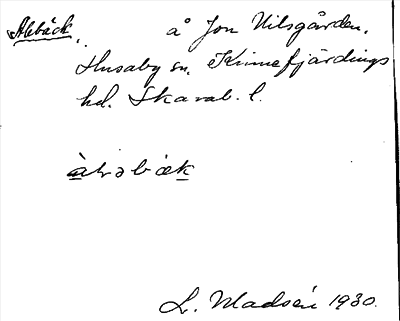 Alebäck, å Jon Nilsgården,
Husaby sn. Kinnefjärdings
hd. Skarab. l.
àləbæk
L. Madsén 1930.